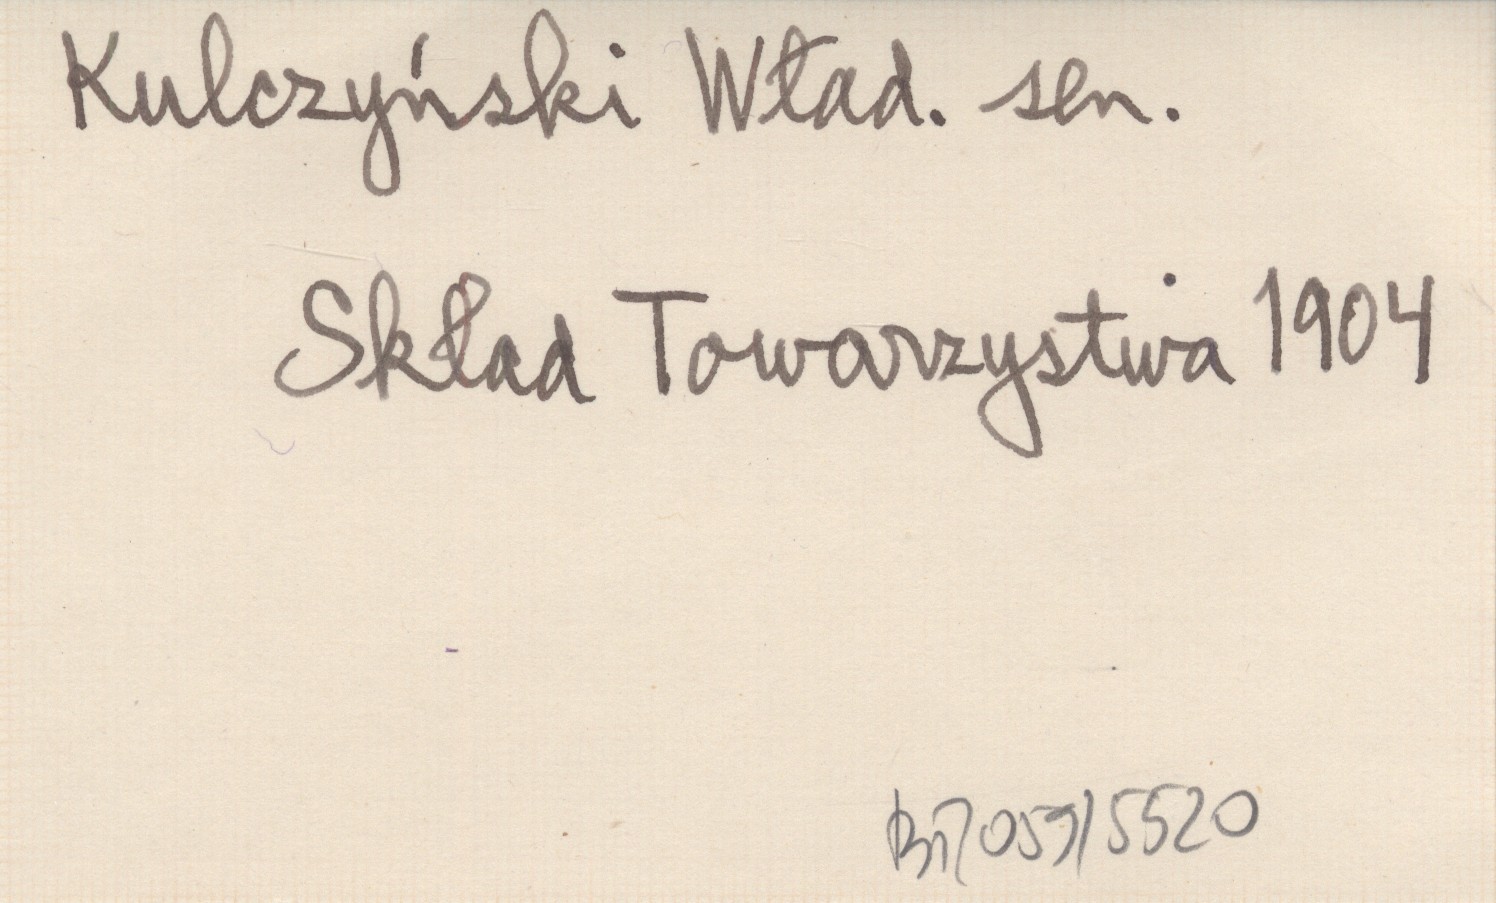 Kulczyński Wład. sen.
Skład Towarzystwa 1904